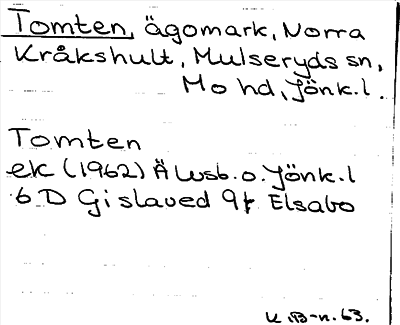 Tomten, ägomark, Norra
Kråkshult, Mulseryds sn,
Mo hd, Jönk.l.
Tomten
ek (1962) Älvsb.o.Jönk.l
6D Gislaved 9f Elsabo
K.B-n.63.